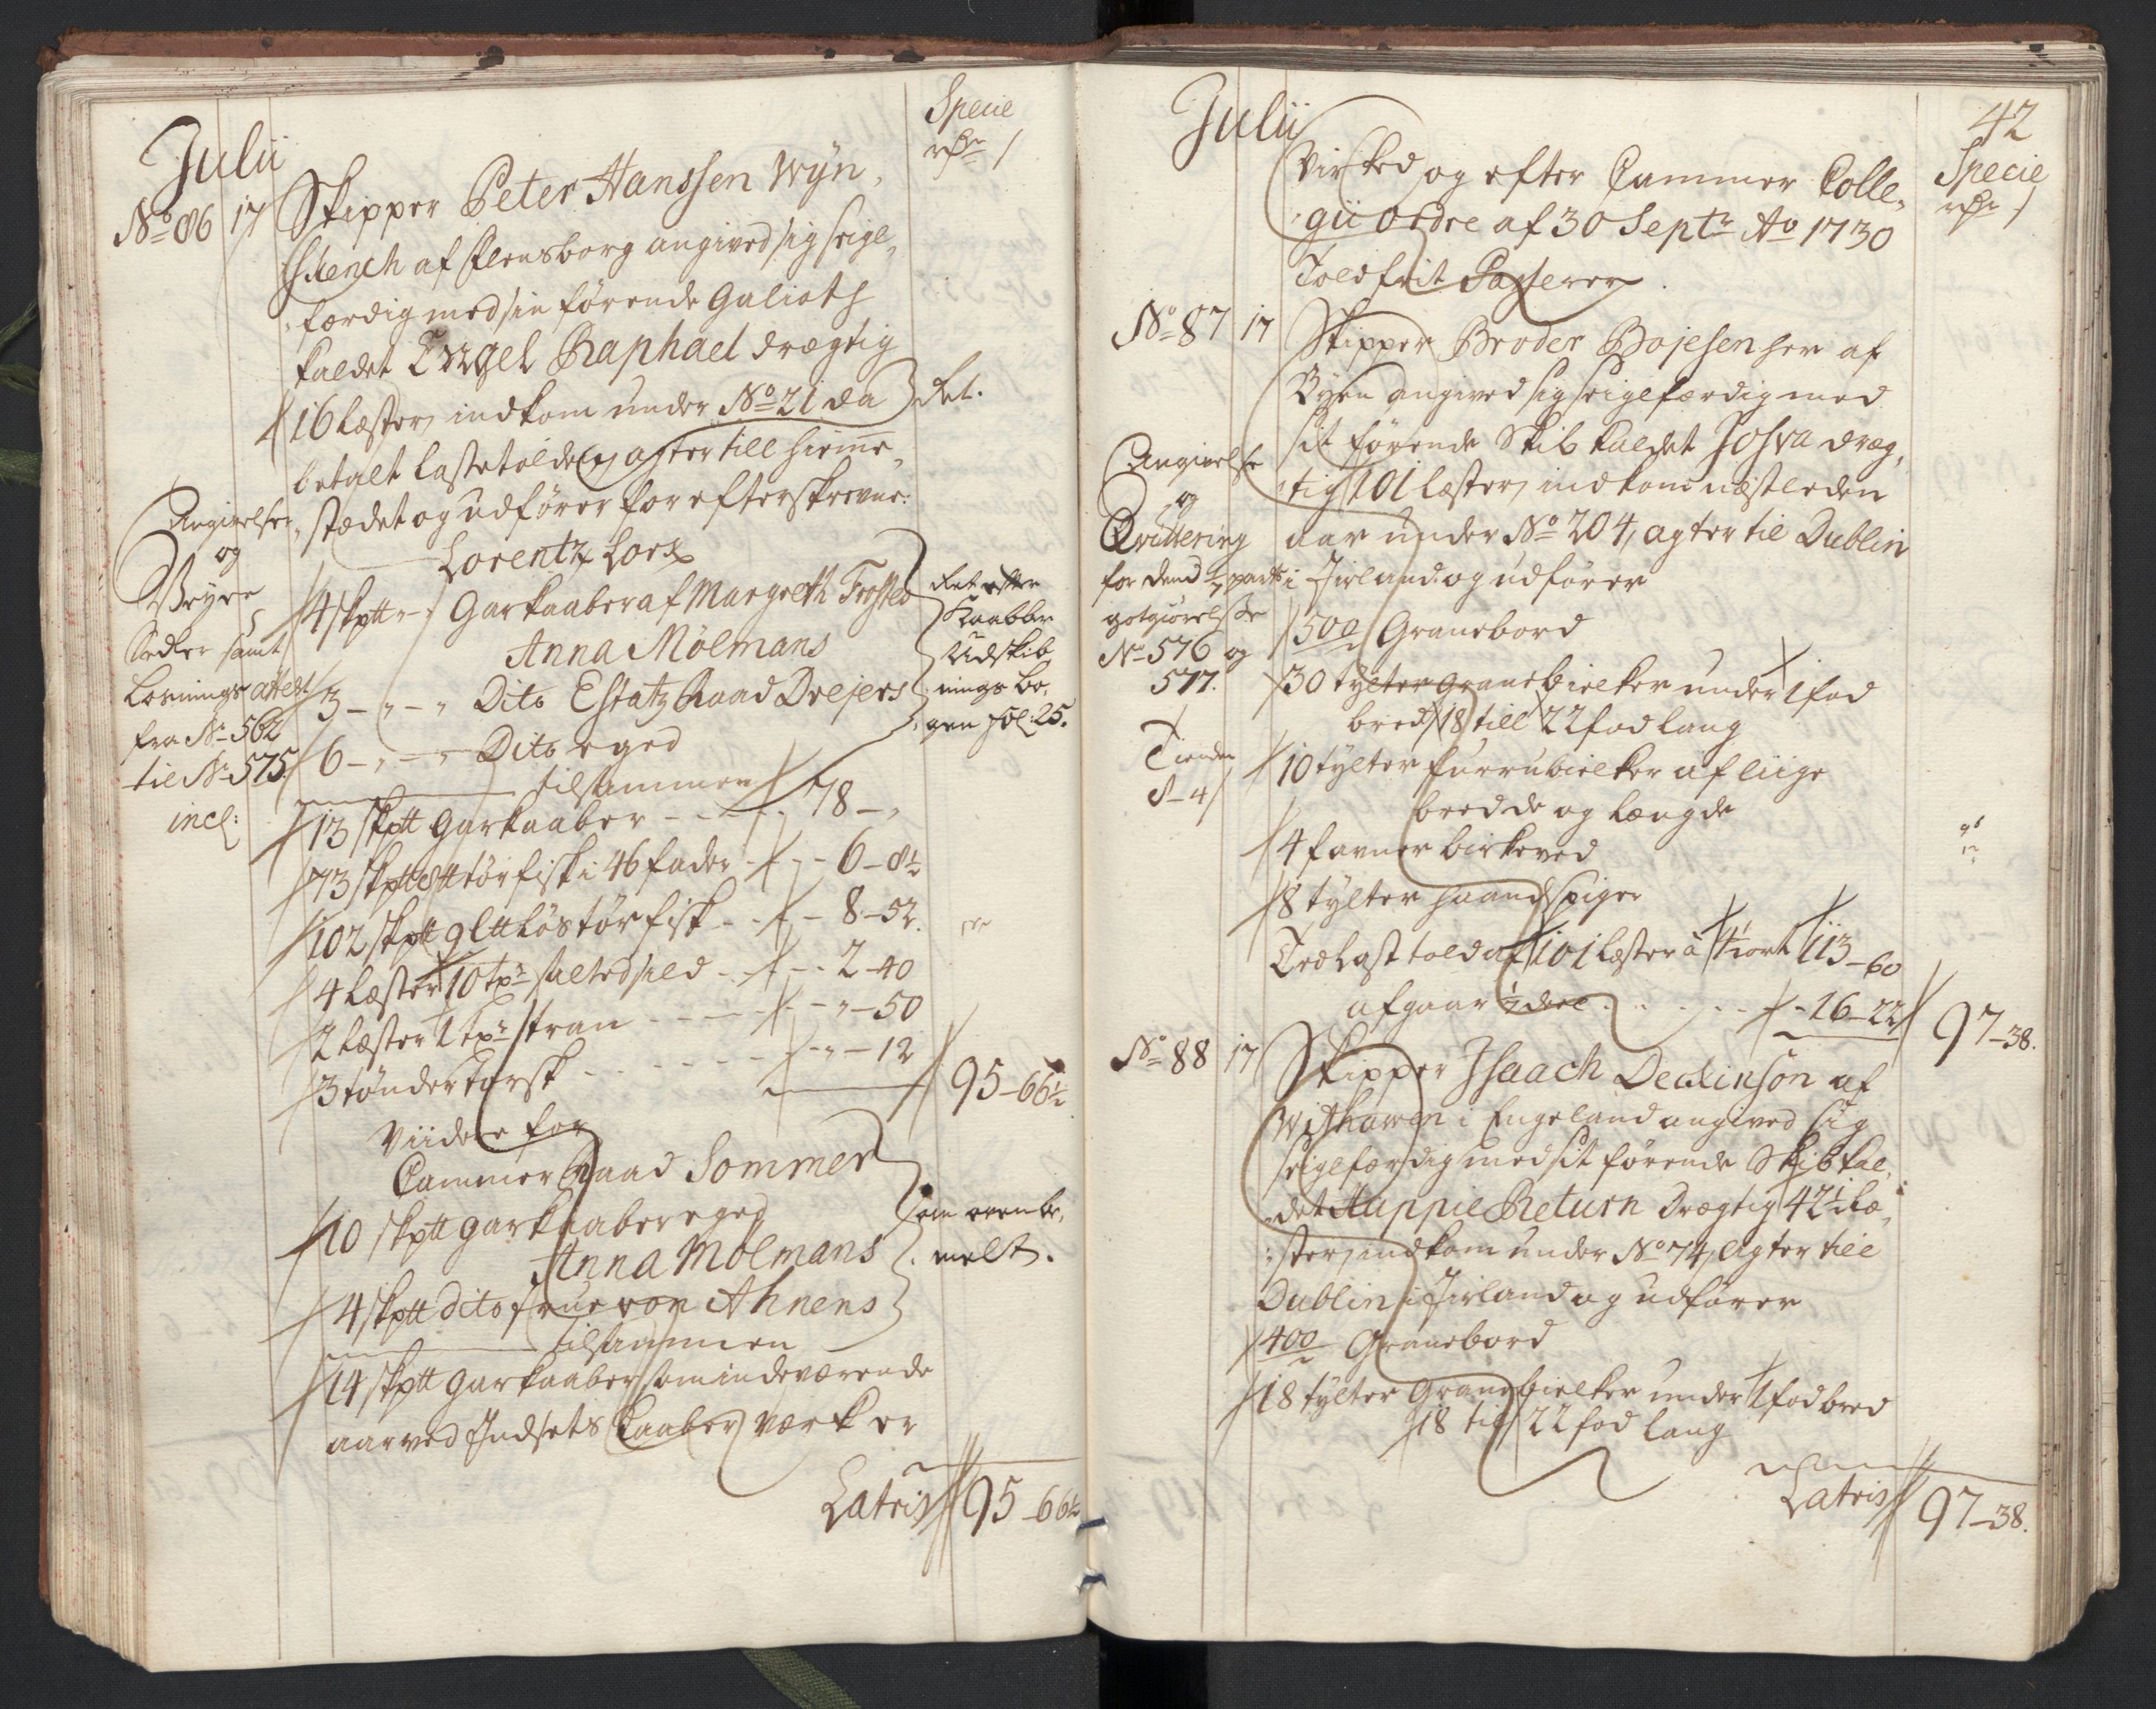 Julii
Specie
rdr /
No 86 17 Skipper Peter Hanssen Wÿn,
schench af flensborg angived sig seigl,
færdig med sin førende Galioth
kaldet Engel Raphael drægtig
16 læster, indkom under No 21 da
Ret.
betalt lastetolden, agter till hieme,
stædet og udfører for efterskrevne:
Angivelser
og
Veyre
Sedler samt
lovnings attest
fra No 562
til No 575
incl:
Lorentz Lorx
4 skptt - " Garkaaber af Margrethe Trosted
Anna Mölmans
3 - " - " Dito Estatz Raad Drejers
6 - " - " Dito eged
Ret efter
Kaabber
Udskib,
nings bo,
gen fol: 25.
tilsammen
13 skptt garkaaber - - - 78 - "
73 skptt 8 tt tör fisk i 46 fader - - 6 - 8½
102 skptt 9 Ltt løs tör fisk - - 8 - 52.
4 læster 10 tr salted sild - - - 2 - 40
2 læster 1 tr tran - - - - " - 50
3 tönder torsk - - - - " - 12
95 - 66½
Viidere for
Cammer Raad Sommer
10 skptt garkaaber eged
Anna Mölmans
4 skptt dito frue von Ahnens
som oven be,
melt.
tilsammen
14 skptt garkaaber som indeværende
aar ved Indsets Kaaber værk er
Latris 95 - 66½
Julii
42
Specie
rdr /
virked og efter Cammer Colle,
gii ordre af 30 Septr Ao 1730
Toldfrit Passerer.
No 87 17 Skipper Broder Bojesen her af
Byen angived sig seiglfærdig med
sit förende Skib kaldet Josva dræg,
tig 101 læster, indkom næstleden
aar under No 204, agter til Dublin
i Jirland og udfører
Angivelse
og
Qvittering
for dend 1/7 parts
gotgiörelse
No 576 og
577.
Tiende
S - 4 /
500 Granebord
30 tylter Granebielker under 1 fod
bred 18 till 22 fod lang
10 tylter furrubielker af liige
bredde og længde
4 favner birkeved
8 tylter haandspiger
Trælast told af 101 læster à 4½ ort 113 - 60
afgaar 1/7 deel . . . . - - 16 - 22
97 - 38.
No 88 17 Skipper Isaach Deckinson af
Withaven i Engeland angived sig
seiglfærdig med sit förende Skib kal,
det Huppie Return Drægtig 42½ læ,
ster, indkom under No 74, Agter till
Dublin i Jirland og udfører
400 Granebord
18 tylter Granebielker under 1 fod bred
18 till 22 fod lang
Latris 97 - 38.